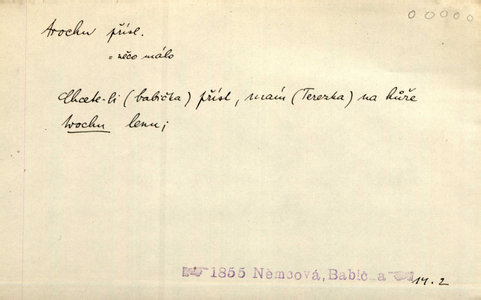 trochu přísl.
= něco málo
Chcete-li (babička) příst, mám (Terezka) na kůře
trochu lenu;
1855 Němcová, Babička
14.2